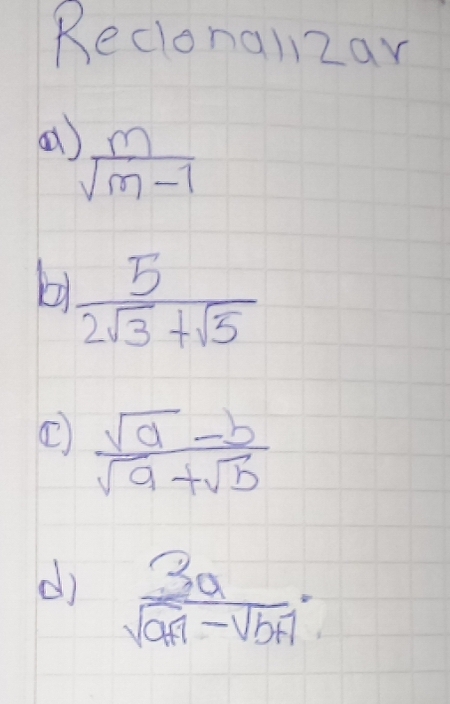 Recionalizar
a) m
√m-1
b) 5
2√3 +√5
c) √a - b
√a +√b
d) 3a
√a+1 - √b+1